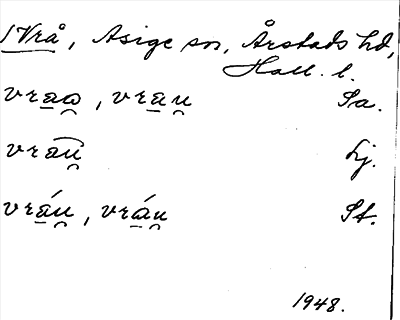 1 Vrå, Asige sn, Årstads hd,
Hall. l.
vra̲o̯, vra̲u̯ Sa.
vra͡u̯ Lj.
vrá̲u̯, vrá̲u̯ St.
1948.